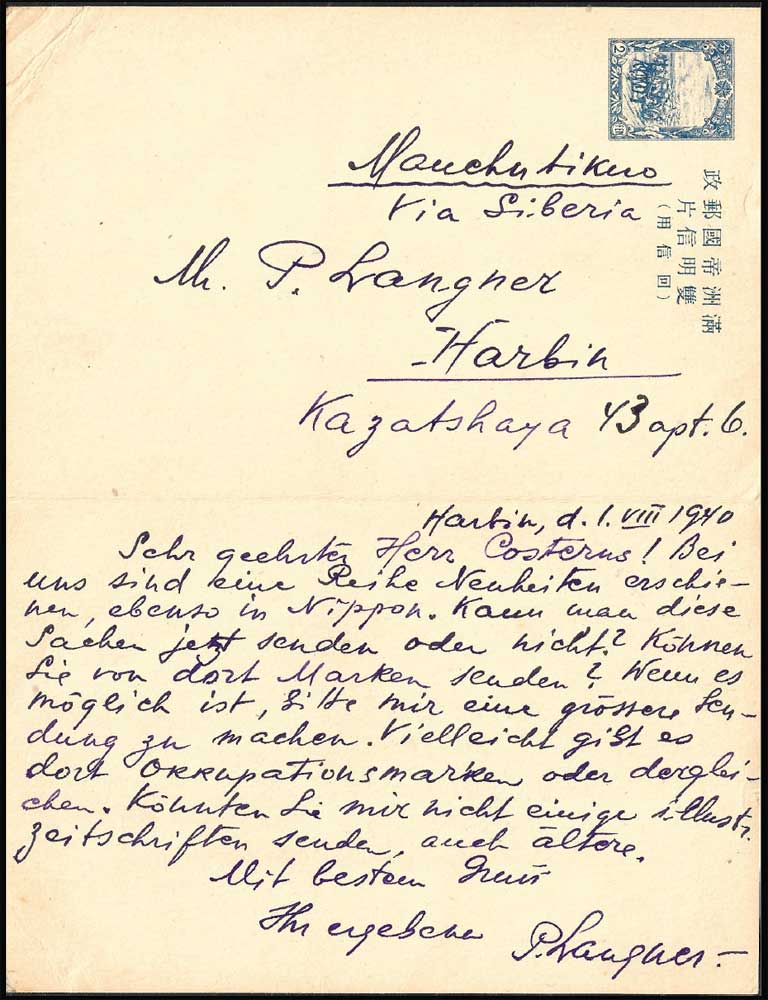 2
Manchutikuo
Via Siberia
Mr. P. Langner
Harbin
Kazatshaya 43 apt. 6.
滿洲帝國郵政
雙明信片
(回信用)
Harbin, d. 1. VIII 1940
Sehr geehrter Herr Costerus! Bei
uns sind eine Reihe Neuheiten erschie-
nen, ebenso in Nippon. Kann man diese
Sachen jetzt senden oder nicht? Können
Sie von dort Marken senden? Wenn es
möglich ist, bitte mir eine grössere Sen-
dung zu machen. Vielleicht gibt es
dort Okkupationsmarken oder derglei-
chen. Könnten Sie mir nicht einige illustr.
Zeitschriften senden, auch ältere.
Mit bestem Gruss
Ihr ergebener
P. Langner.-